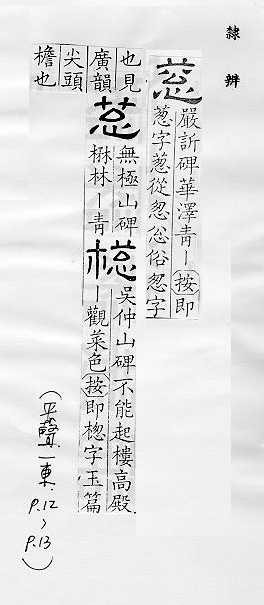 隸辨
䓗
嚴訢碑華澤青ー(按)即
葱字葱從怱忩俗怱字
䓗
無極山碑
楙林ー青
棇
吳仲山碑不能起樓高殿
ー觀菜色(按)即楤字玉篇
也見
廣韻
尖頭
檐也
(平聲一東 P.12、P.13)